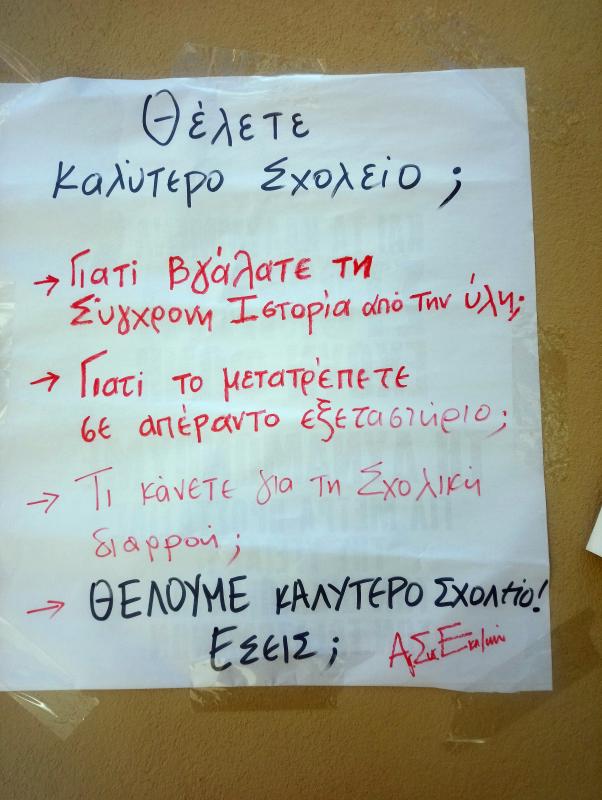 Θέλετε
καλύτερο Σχολείο ;
→ Γιατί βγάλατε τη
Σύγχρονη Ιστορία από την ύλη;
→ Γιατί το μετατρέπετε
σε απέραντο εξεταστήριο;
→ Τι κάνετε για τη Σχολική
διαρροή;
→ ΘΕΛΟΥΜΕ ΚΑΛΥΤΕΡΟ ΣΧΟΛΕΙΟ!
ΕΣΕΙΣ ;